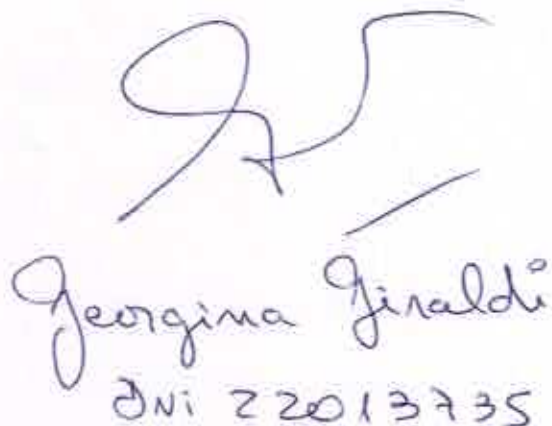 Georgina Giraldi
DNi 22013735